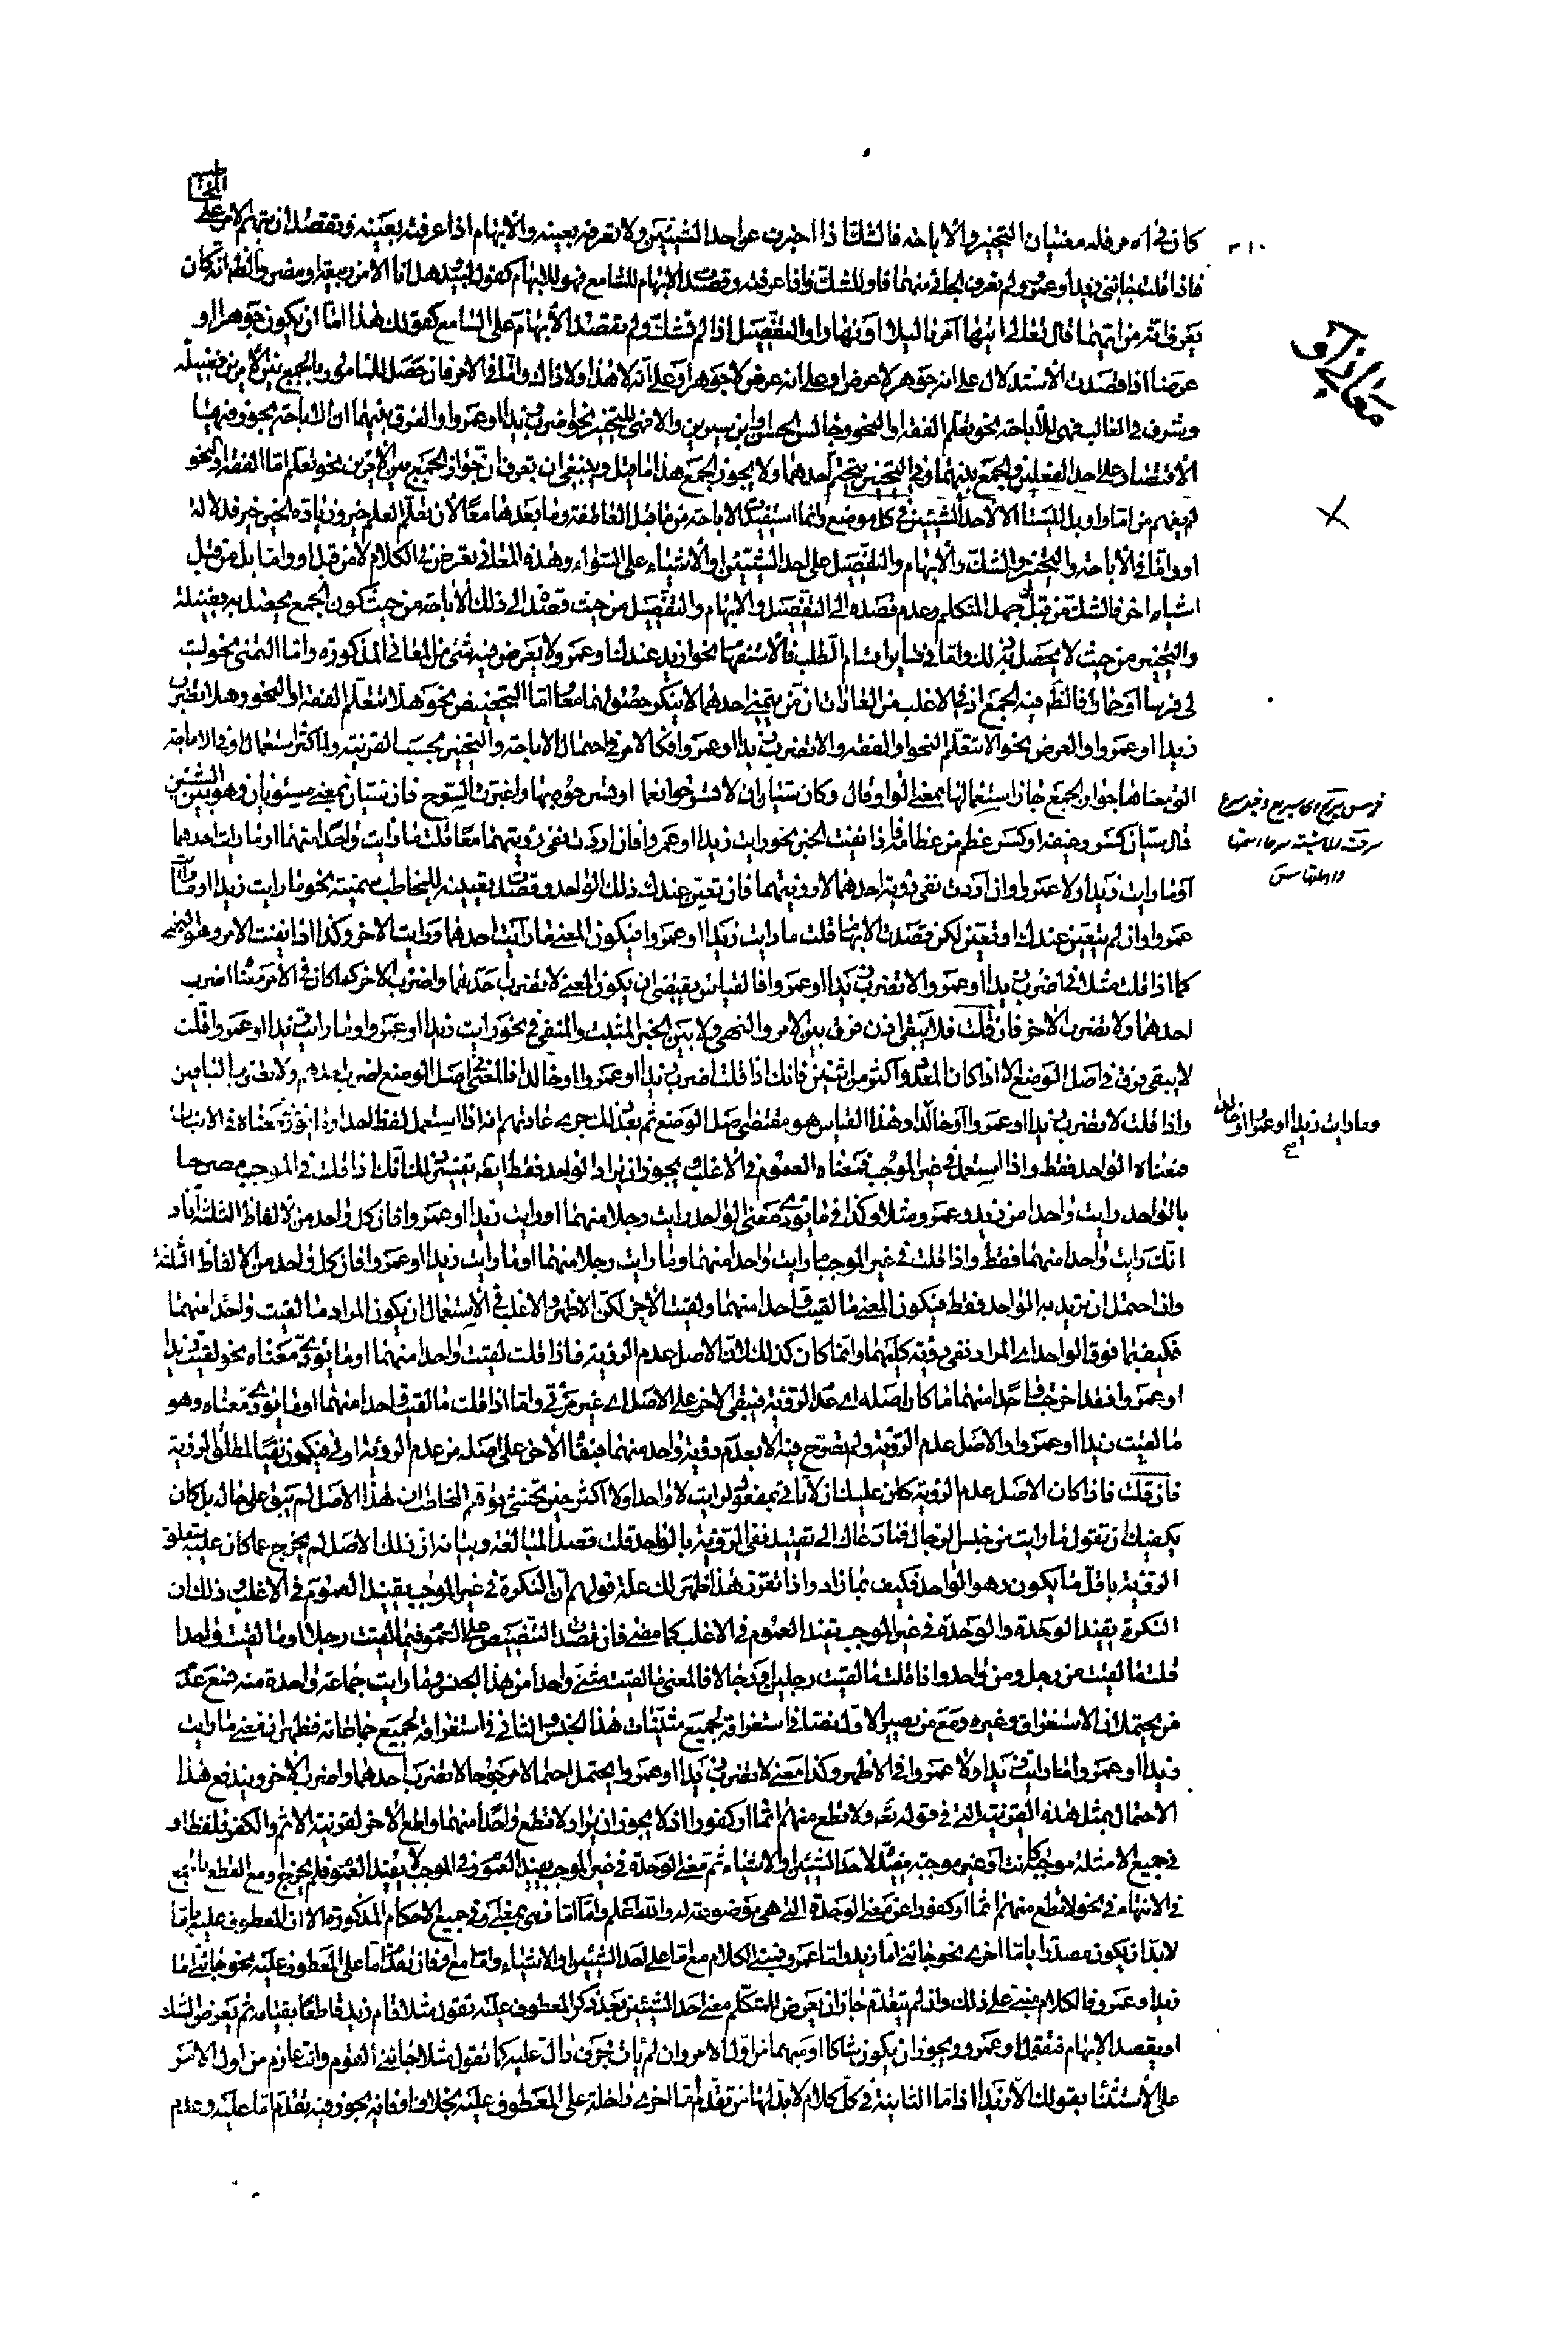 كان فى الامر فله معنيان التخيير والاباحة فالشك اذا اخبرت عن احد الشيئين ولا تعرفه بعينه والابهام اذا عرفته بعينه وتقصد ان تبهم الامر على
المخاطب
فاذا قلت جائنى زيد او عمرو ولم تعرف الجائى منهما فاو للشك واذا عرفته وقصدت الابهام للسامع فهو للابهام كقول لبيد هل انا الا من ربيعة او مضر والظاهر انه كان
يعرف انه من ايهما قال تعالى اتيها امرنا ليلا او نهارا والتفصيل اذا لم تشك ولم تقصد الابهام على السامع كقولك هذا اما ان يكون جوهرا او
عرضا اذا قصدت الاستدلال على انه جوهر لا عرض او على انه عرض لا جوهر او على انه لا هذا ولا ذاك واما فى الامر فان حصل للمامور بالجمع بين الامرين فضيلة
وشرف فى الغالب فهى للاباحة نحو تعلم الفقه او النحو وجالس الحسن او ابن سيرين والا فهى للتخيير نحو اضرب زيدا او عمروا والفرق بينهما ان الاباحة يجوز فيها
الاقتصار على احد الفعلين والجمع بينهما وفى التخيير يتحتم احدهما ولا يجوز الجمع هذا ما قيل وينبغى ان تعرف ان جواز الجمع بين الامرين نحو تعلم اما الفقه او النحو
لم يفهم من اما واو بل ليستا الا لاحد الشيئين فى كل موضع وانما استفيدت الاباحة من ما قبل العاطفة وما بعدها معا لان تعلم العلم خير وزيادة الخير خير فدلالة
او واما فى الاباحة والتخيير والشك والابهام والتفصيل على احد الشيئين او الاشياء على السواء وهذه المعانى تعرض فى الكلام لا من قبل او واما بل من قبل
اشياء اخر فالشك من قبل جهل المتكلم وعدم قصده الى التفصيل والابهام والتفصيل من حيث قصد الى ذلك والاباحة من حيث كون الجمع يحصل به فضيلة
والتخيير من حيث لا يحصل به ذلك واما فى سائر اقسام الطلب فالاستفهام نحو ازيد عندك او عمرو ولا يعرض فيه شئ من المعانى المذكورة واما التمنى نحو ليت
لى فرسا او حمارا فالظ فيه الجمع اذ فى الاغلب من العادات ان من يتمنى احدهما لا ينكر حصولهما معا اما التحضيض نحو هلا تتعلم الفقه او النحو وهلا تضرب
زيدا او عمروا والعرض نحو الا تتعلم النحو او الفقه والا تضرب زيدا او عمروا فكالامر فى احتمال الاباحة والتخيير بحسب القرينة ولما كثر استعمال او فى الاباحة
التى معناها جواز الجمع جاز استعمالها بمعنى الواو قال وكان سيان ان لا يسرحوا نعما او يسرحوه بها واغبرت السوح فان سيان بمعنى مستويان وهو بين الشيئين
قال سيان كسر رغيفه او كسر عظم من عظامه فاذا نفيت الخبر نحو رايت زيدا او عمروا فان اردت نفى رؤيتهما معا قلت ما رايت واحدا منهما او ما رايت احدهما
او ما رايت زيدا ولا عمروا وان اردت نفى رؤية احدهما لا رؤيتهما فان تعين عندك ذلك الواحد وقصدت تعيينه للمخاطب سميته نحو ما رايت زيدا او ما رايت
عمروا وان لم يتعين عندك او تعين لكن قصدت الابهام قلت ما رايت زيدا او عمروا فيكون المعنى ما رايت احدهما ورايت الاخر وكذا اذا نفيت الامر وهو النهى
كما اذا قلت مثلا فى اضرب زيدا او عمروا لا تضرب زيدا او عمروا فالقياس يقتضى ان يكون المعنى لا تضرب احدهما واضرب الاخر كما كان فى الامر معنا اضرب
احدهما ولا تضرب الاخر فان قلت فلا يبقى اذن فرق بين الامر والنهى ولا بين الخبر المثبت والمنفى فى نحو رايت زيدا او عمروا وما رايت زيدا او عمروا قلت
لا يبقى فرق فى اصل الوضع الا اذا كان المعدود اكثر من اثنين فانك اذا قلت اضرب زيدا او عمروا او خالدا فالمعنى فى اصل الوضع اضرب احدهم ولا تضرب الباقيين
واذا قلت لا تضرب زيدا او عمروا او خالدا وهذا القياس هو مقتضى اصل الوضع ثم بعد ذلك جرى عادتهم انه اذا استعمل لفظ احد او ما يؤدى معناه فى الاثبات
فمعناه الواحد فقط واذا استعمل فى غير الموجب فمعناه العموم فى الاغلب ويجوز ان يراد الواحد فقط ايضا تفسير ذلك انك اذا قلت فى الموجب مصرحا
بالواحد رايت واحدا من زيد وعمرو مثلا وكذا فى ما يؤدى معنى الواحد رايت رجلا منهما او رايت زيدا او عمروا فان كل واحد من الالفاظ الثلثة افاد
انك رايت واحدا منهما فقط واذا قلت فى غير الموجب ما رايت واحدا منهما وما رايت رجلا منهما او ما رايت زيدا او عمروا فان كل واحد من الالفاظ الثلثة
وان احتمل ان يريد به الواحد فقط فيكون المعنى ما لقيت واحدا منهما ولقيت الاخر لكن الاظهر والاغلب فى الاستعمال ان يكون المراد ما لقيت واحدا منهما
فكيف بما فوق الواحد اى المراد نفى رؤية كليهما وانما كان كذلك لان الاصل عدم الرؤية فاذا قلت لقيت واحدا منهما او ما يؤدى معناه نحو لقيت زيدا
او عمروا فقد اخرجت واحدا منهما مما كان اصله اى عدم الرؤية فيبقى الاخر على الاصل اى غير مرئى واما اذا قلت ما لقيت واحدا منهما او ما يؤدى معناه وهو
ما لقيت زيدا او عمروا والاصل عدم الرؤية ولم تصرح فيه الا بعدم رؤية واحد منهما فبقاء الاخر على اصله من عدم الرؤية اولى فيكون نفيا لمطلق الرؤية
فان قلت فاذا كان الاصل عدم الرؤية كان عليك ان لا تاتى بمفعول رايت لا واحدا ولا اكثر حين تخشى توهم المخاطب ان هذا الاصل لم يبق على حاله بل كان
يكفيك ان تقول ما رايت من جنس الرجال فما دعاك الى تقييد نفى الرؤية بالواحد قلت قصد المبالغة وبيانه ان ذلك الاصل لم يخرج عما كان عليه بتعلق
الرؤية باقل ما يكون وهو الواحد فكيف بما زاد واذا تقرر هذا ظهر لك علة قولهم ان النكرة فى غير الموجب يفيد العموم فى الاغلب وذلك ان
النكرة يفيد الوحدة والوحدة فى غير الموجب تفيد العموم فى الاغلب كما مضى فان قصدت التنصيص على العموم فى ما لقيت رجلا او ما لقيت واحدا
قلت ما لقيت من رجل ومن واحد واذا قلت ما لقيت رجلين او رجالا فالمعنى ما لقيت مثنى واحدا من هذا الجنس وما رايت جماعة واحدة منه فمع عدم
من يحتملان الاستغراق وغيره ومع من يصير الاول نصا فى استغراقه لجميع مثنيات هذا الجنس والثانى فى استغراقه لجميع جماعاته فظهر ان معنى ما رايت
زيدا او عمروا ما رايت زيدا ولا عمروا فى الاظهر وكذا معنى لا تضرب زيدا او عمروا يحتمل احتمالا مرجوحا لا تضرب احدهما واضرب الاخر ويندفع هذا
الاحتمال بمثل هذه القرينة التى فى قوله تع ولا تطع منهم اثما او كفورا اذ لا يجوز ان يراد لا تطع واحدا منهما واطع الاخر لقرينة الاثم والكفر فلفظ او
فى جميع الامثلة موجبة كانت او غير موجبة مفيدة لاحد الشيئين او الاشياء ثم معنى الوحدة فى غير الموجب يفيد العموم وفى الموجب لا يفيد العموم فلم يخرج او مع القطع بالجمع
فى الانتهاء فى نحو لا تطع منهم اثما او كفورا عن معنى الوحدة التى هى موضوعة له والله اعلم واما اما فهى بمعنى او فى جميع الاحكام المذكورة الا ان المعطوف عليه باما
لا بد ان يكون مصدرا باما اخرى نحو جائنى اما زيد واما عمرو فيبنى الكلام مع اما على احد الشيئين او الاشياء واما مع او فان تقدم اما على المعطوف عليه نحو جائنى اما
زيد او عمرو فالكلام مبنى على ذلك وان لم يتقدم جاز ان يعرض للمتكلم معنى احد الشيئين بعد ذكر المعطوف عليه تقول مثلا قام زيد قاطعا بقيامه ثم يعرض الشك
او يقصد الابهام فتقول او عمرو ويجوز ان يكون شاكا او مبهما من اول الامر وان لم يات بحرف دال عليه كما تقول مثلا جائنى القوم وانت عازم من اول الامر
على الاستثناء بقولك الا زيدا اذا ما الثانية فى كل كلام لا بد لها من تقدم اما اخرى داخلة على المعطوف عليه بخلاف او فانه يجوز فيه تقدم اما عليه وعدم
٣١٠
معانى او
وما رايت زيدا او عمروا او خالدا
صح